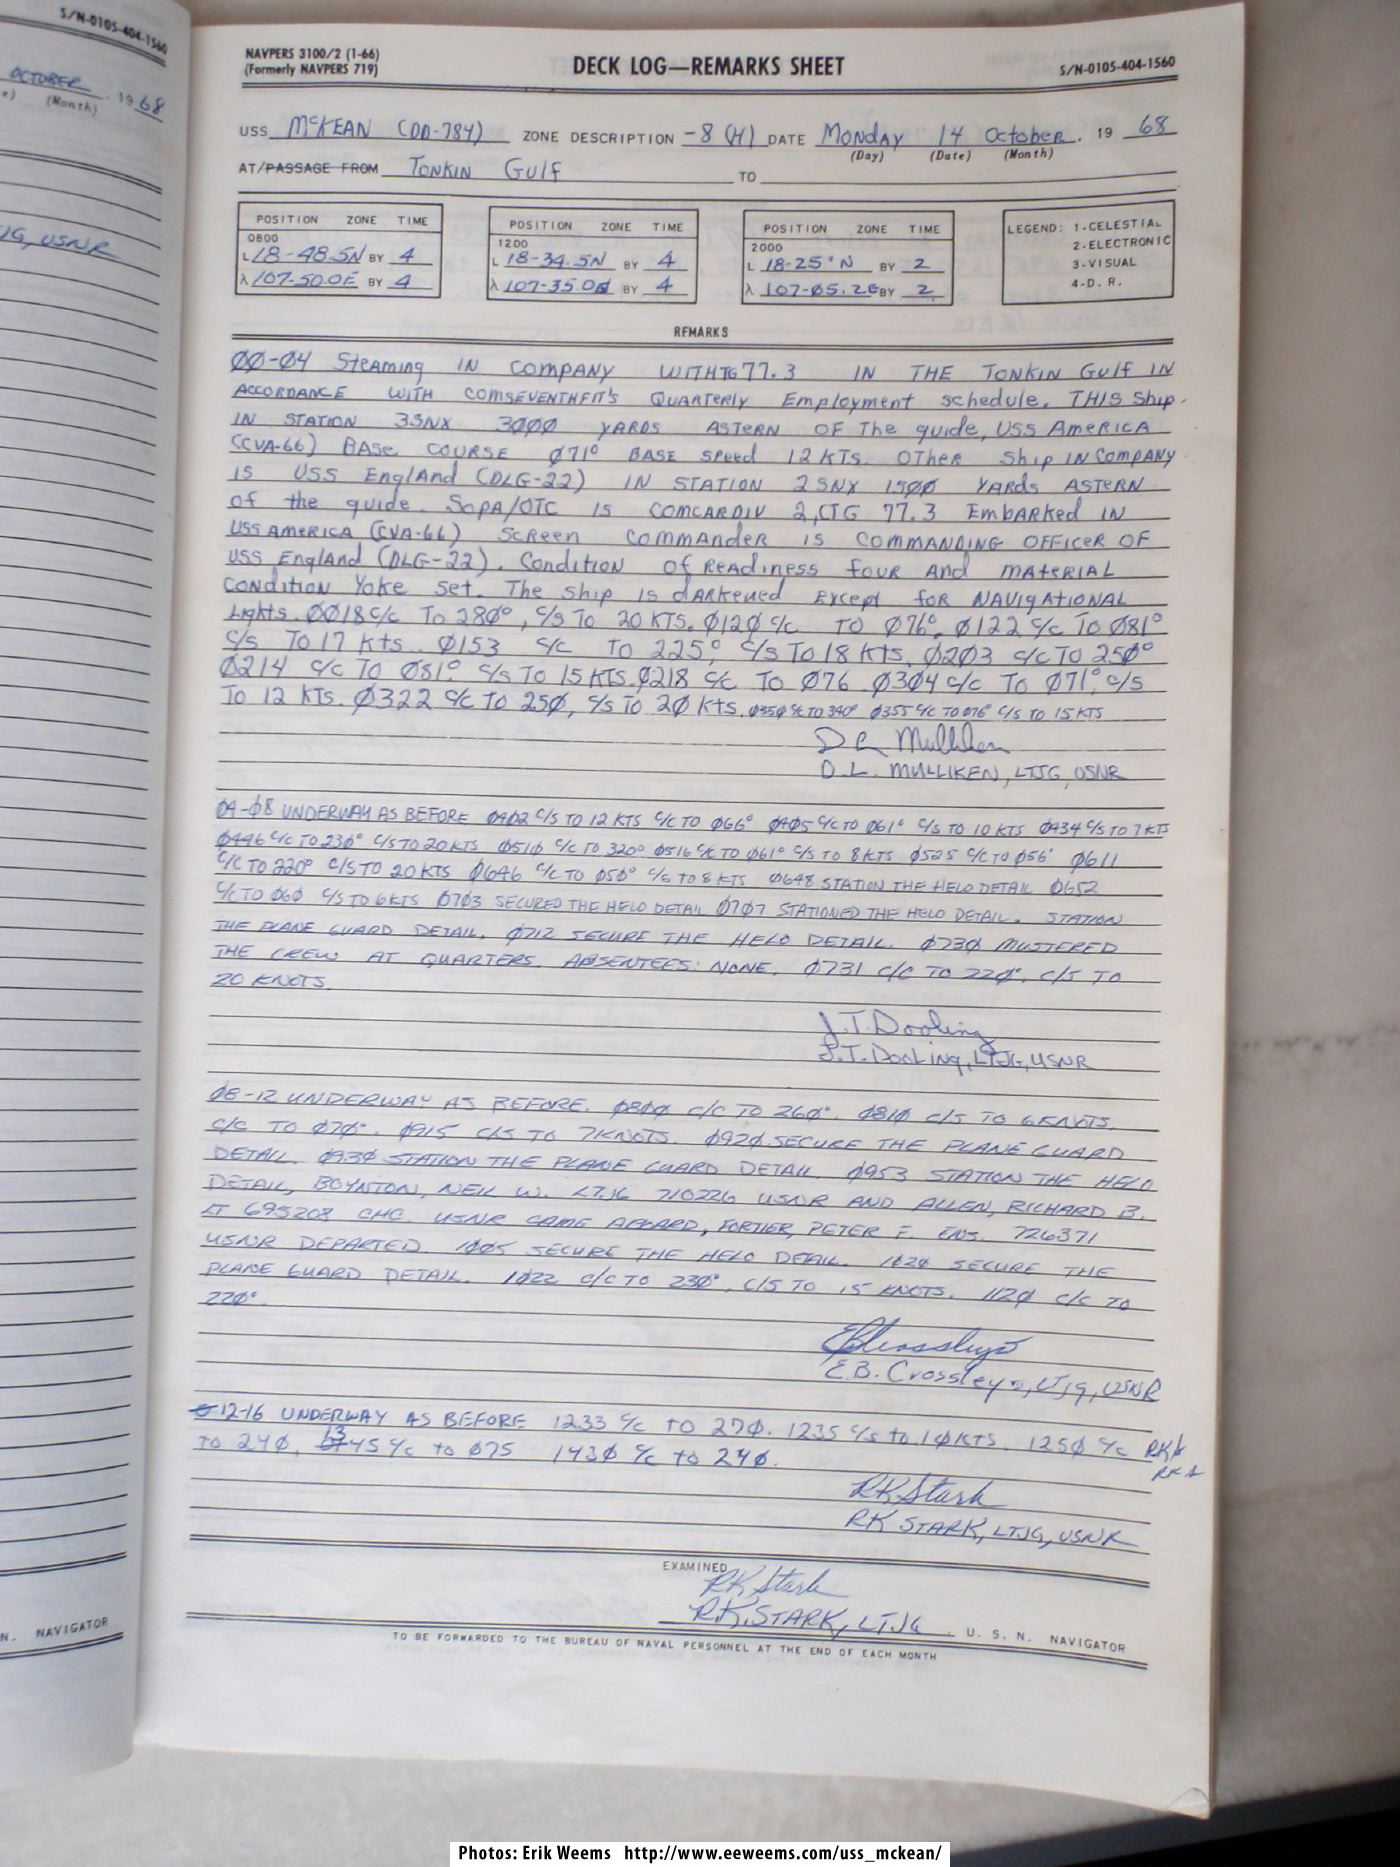 S/N-0105-404-1560
OCTOBER 1968
(Month)
JG, USNR
N. NAVIGATOR
NAVPERS 3100/2 (1-66)
(Formerly NAVPERS 719)
DECK LOG—REMARKS SHEET
S/N-0105-404-1560
USS McKEAN (DD-784) ZONE DESCRIPTION -8 (H) DATE Monday 14 October 19 68
(Day) (Date) (Month)
AT/PASSAGE FROM TONKIN Gulf TO
POSITION ZONE TIME
0800
L 18-48.5N BY 4
λ 107-50.0E BY 4
POSITION ZONE TIME
1200
L 18-34.5N BY 4
λ 107-35.0E BY 4
POSITION ZONE TIME
2000
L 18-25°N BY 2
λ 107-05.2E BY 2
LEGEND: 1-CELESTIAL
2-ELECTRONIC
3-VISUAL
4-D. R.
REMARKS
00-04 Steaming IN Company WITH TG 77.3 IN THE TONKIN Gulf IN
ACCORDANCE WITH COMSEVENTHFlt's QUARTERLY Employment schedule. THIS Ship
IN STATION 3SNX 3000 YARDS ASTERN OF The guide, USS AmericA
(CVA-66) BASE COURSE 071° BASE Speed 12 KTS. OTHER Ship IN Company
IS USS ENglAnd (DLG-22) IN STATION 2SNX 1500 YARds ASTERN
of the guide. SopA/OTC IS COMCARDIV 2, CTG 77.3 EmbARked IN
USS AMERICA (CVA-66) SCREEN COMMANdeR IS COMMANDING OFFICER OF
USS ENglANd (DLG-22). CONdITION of ReAdiNess four ANd MATERIAL
CONdITION Yoke Set. The Ship IS dARKeNed Except foR NAVIgATIONAL
Lights. 0018 c/c To 280°, c/s To 20 KTS. 0120 c/c TO 076°. 0122 c/c To 081°
c/s To 17 Kts. 0153 c/c To 225°, c/s To 18 KTS. 0203 c/c TO 250°
0214 c/c To 081° c/s To 15 KTS. 0218 c/c To 076 0304 c/c To 071°, c/s
To 12 KTS. 0322 c/c To 250, c/s To 20 kts. 0350 c/c TO 340° 0355 c/c TO 076° c/s TO 15 KTS
D L Mulliken
D. L. MULLIKEN, LTJG, USNR
04-08 UNDERWAY AS BEFORE 0402 C/S TO 12 KTS C/C TO 066° 0405 C/C TO 061° C/S TO 10 KTS 0434 C/S TO 7 KTS
0446 C/C TO 230° C/S TO 20 KTS 0510 C/C TO 320° 0516 C/C TO 061° C/S TO 8 KTS 0525 C/C TO 056° 0611
C/C TO 220° C/S TO 20 KTS 0646 C/C TO 050° C/S TO 8 KTS 0648 STATION THE HELO DETAIL 0652
C/C TO 060 C/S TO 6 KTS 0703 SECURED THE HELO DETAIL 0707 STATIONED THE HELO DETAIL. STATION
THE PLANE GUARD DETAIL. 0712 SECURE THE HELO DETAIL. 0730 MUSTERED
THE CREW AT QUARTERS. ABSENTEES: NONE. 0731 C/C TO 220°. C/S TO
20 KNOTS.
J.T. Dooling
J.T. Dooling, LTJG, USNR
08-12 UNDERWAY AS BEFORE. 0800 C/C TO 260°. 0810 C/S TO 6 KNOTS.
C/C TO 070°. 0915 C/S TO 7 KNOTS. 0920 SECURE THE PLANE GUARD
DETAIL. 0930 STATION THE PLANE GUARD DETAIL. 0953 STATION THE HELO
DETAIL, BOYNTON, NEIL W. LTJG 710226 USNR AND ALLEN, RICHARD B.
LT 695208 CHC. USNR CAME ABOARD, FORTIER, PETER F. ENS. 726371
USNR DEPARTED. 1005 SECURE THE HELO DETAIL. 1020 SECURE THE
PLANE GUARD DETAIL. 1022 C/C TO 230°, C/S TO 15 KNOTS. 1120 C/C TO
220°.
E.B. Crossley, LTJG, USNR
12-16 UNDERWAY AS BEFORE 1233 c/c to 270. 1235 c/s to 10 KTS. 1250 c/c RKS
to 240, 1345 c/c to 075 1430 c/c to 240. RKS
RK Stark
RK STARK, LTJG, USNR
EXAMINED
RK Stark
R.K. STARK, LTJG U. S. N. NAVIGATOR
TO BE FORWARDED TO THE BUREAU OF NAVAL PERSONNEL AT THE END OF EACH MONTH
Photos: Erik Weems http://www.eeweems.com/uss_mckean/